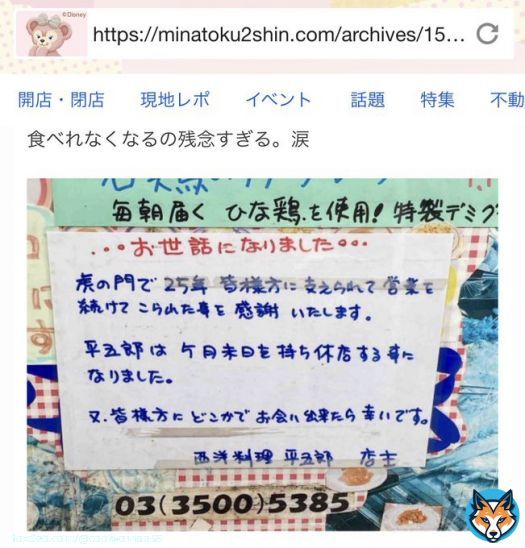 ©Disney
https://minatoku2shin.com/archives/15…
開店・閉店 現地レポ イベント 話題 特集 不動
食べれなくなるの残念すぎる。涙
毎朝届く ひな鶏を使用! 特製デミグ
・・・お世話になりました・・・
虎の門で 25年 皆様方に支えられて 営業を
続けて こられた事を 感謝 いたします。
平五郎は 7月末日を 持ち休店する事に
なりました。
又、皆様方に どこかで お会い出来たら 幸いです。
西洋料理 平五郎 店主
03(3500)5385